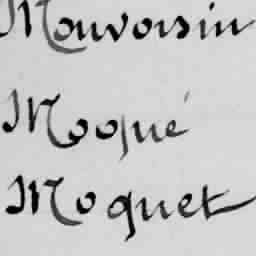 Mouvoisin
Moqué
Moquet